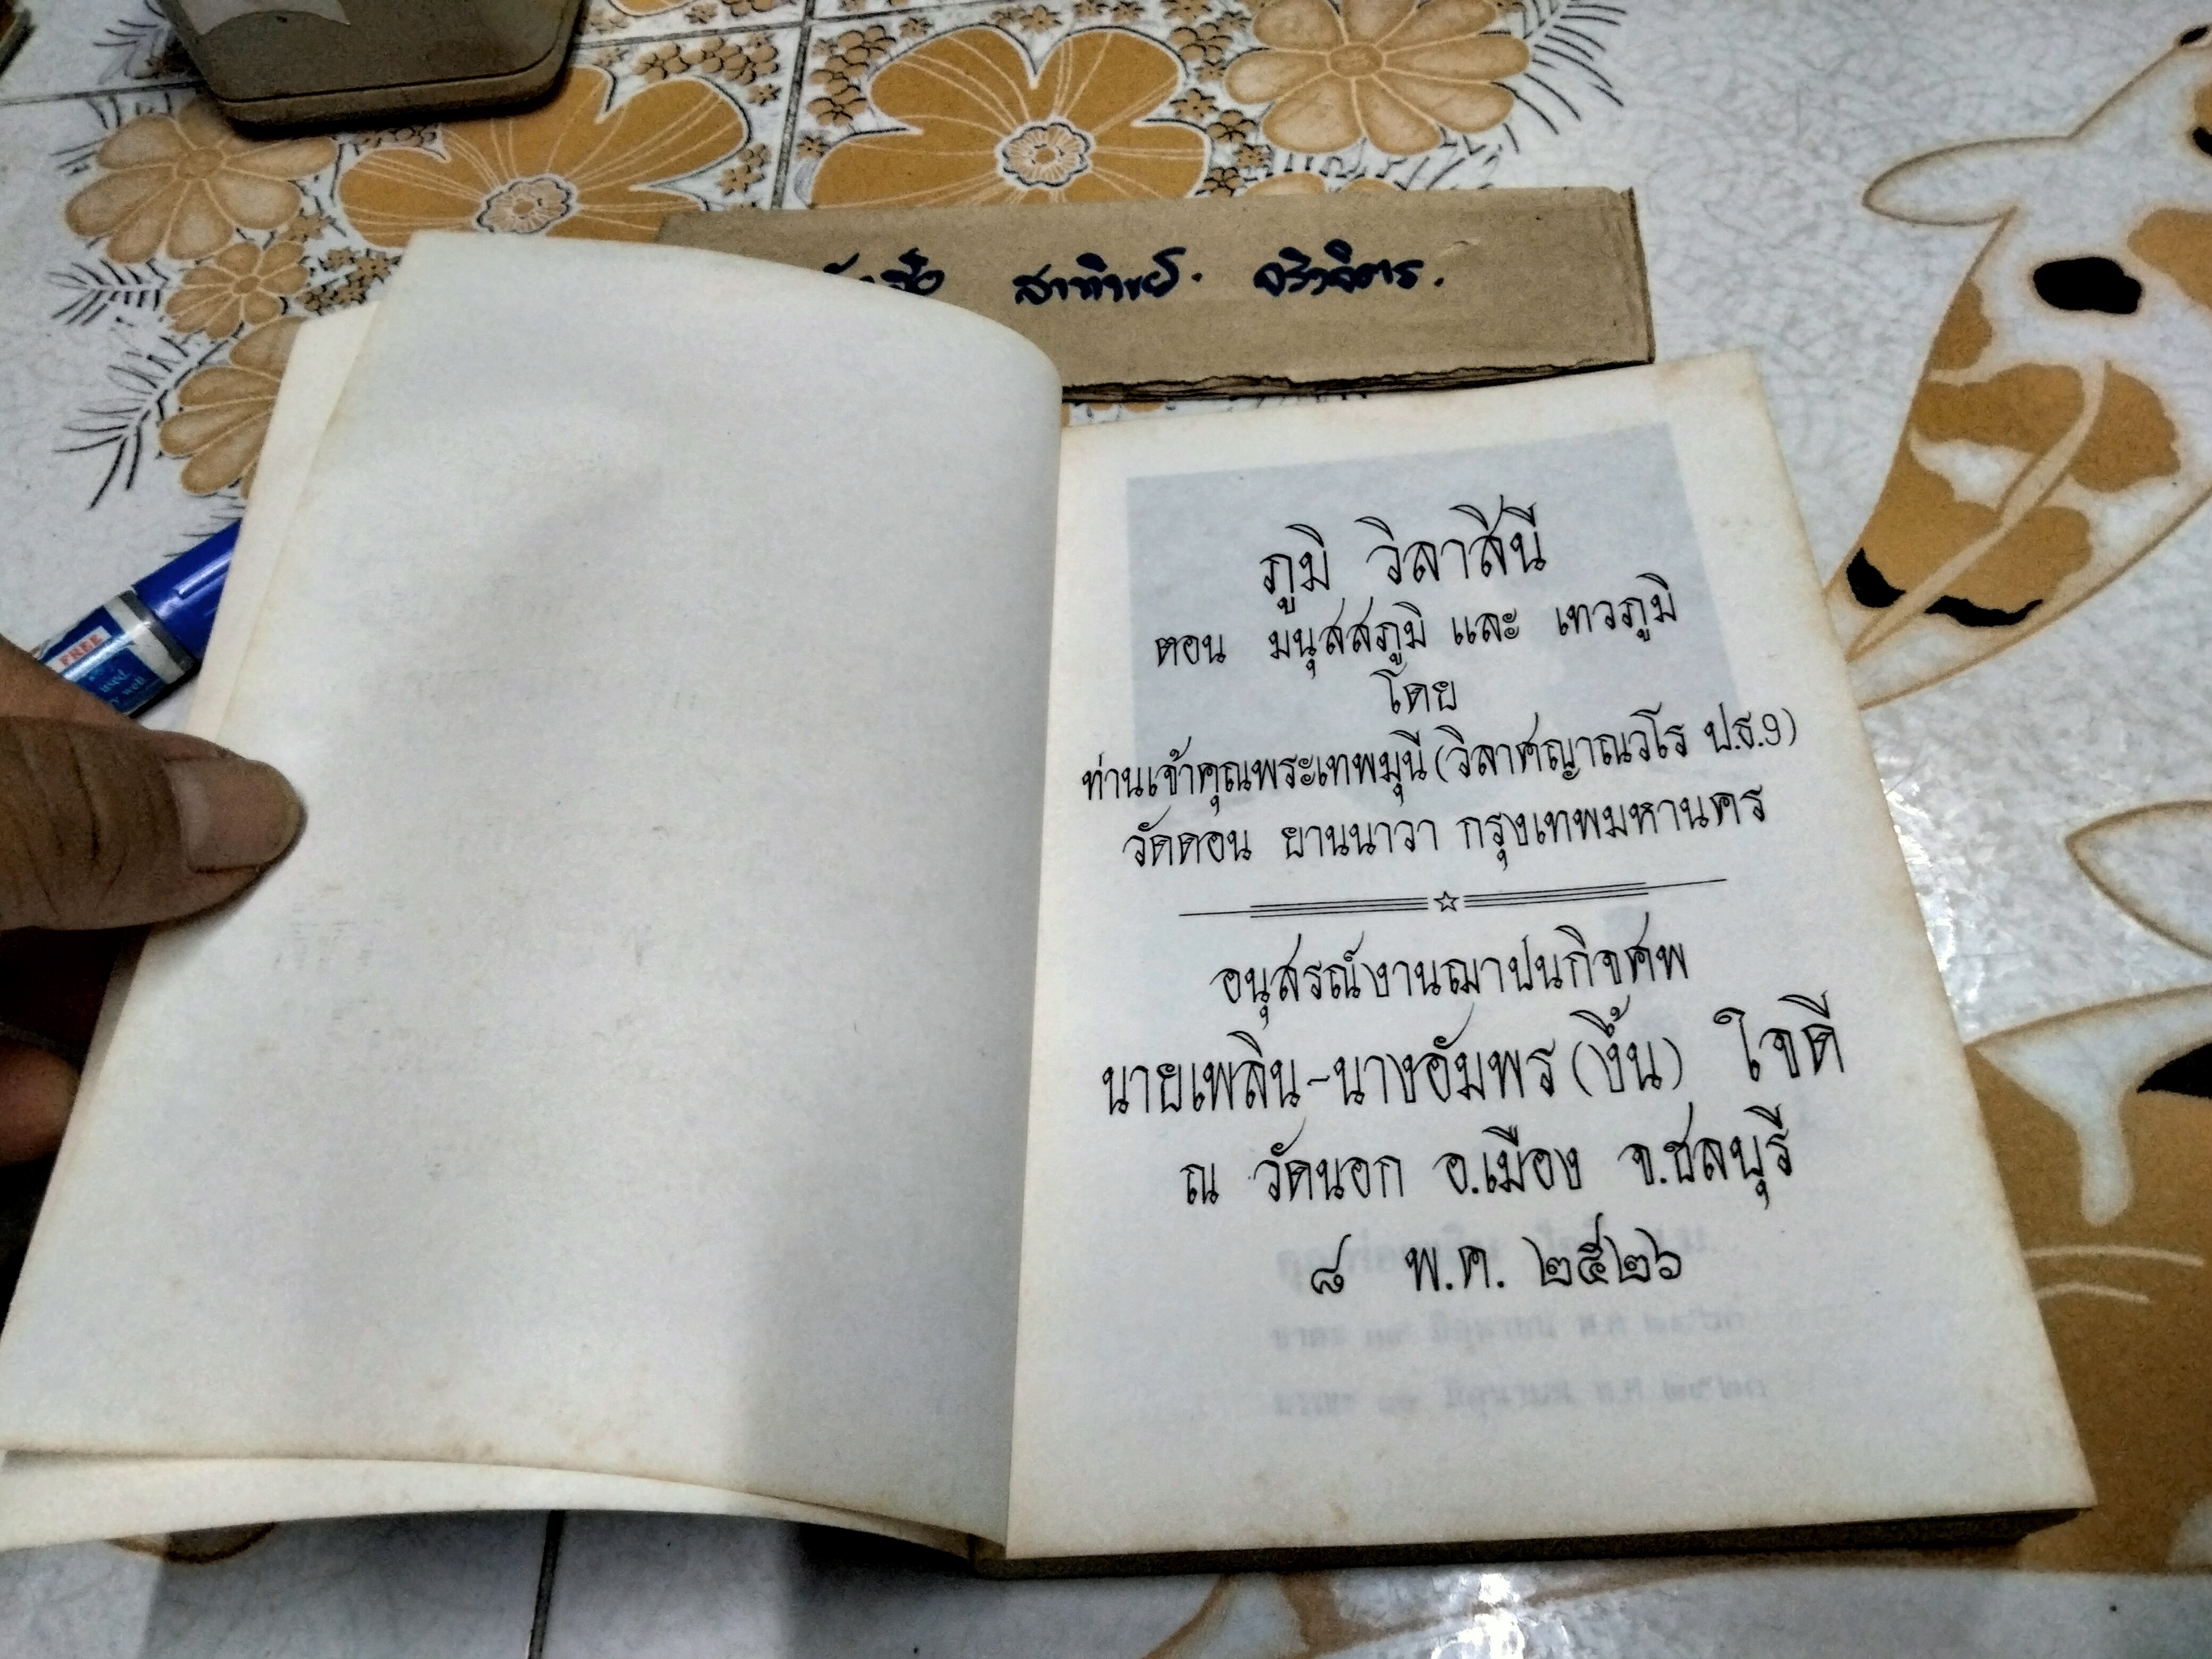 สาทิพย์. จริงจิตร.
ภูมิ วิลาสินี
ตอน มนุสสภูมิ และ เทวภูมิ
โดย
ท่านเจ้าคุณพระเทพมุนี (วิลาศญาณวโร ป.ธ.9)
วัดดอน ยานนาวา กรุงเทพมหานคร
อนุสรณ์งานฌาปนกิจศพ
นายเพลิน-นางอัมพร (งึ้น) ใจดี
ณ วัดนอก อ.เมือง จ.ชลบุรี
๘ พ.ค. ๒๕๒๖
FREE
used
well